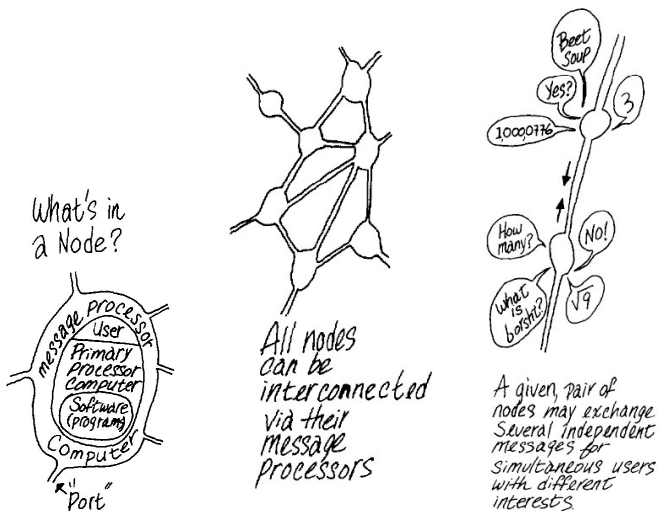 What's in
a Node?
message processor
User
Primary
Processor
Computer
Software
(program)
Computer
"Port"
All nodes
can be
interconnected
via their
message
processors
Beet
soup
Yes?
3
1,000,0776
How
many?
No!
What
is
borsht?
√9
A given, pair of
nodes may exchange
Several independent
messages for
simultaneous users
with different
interests.